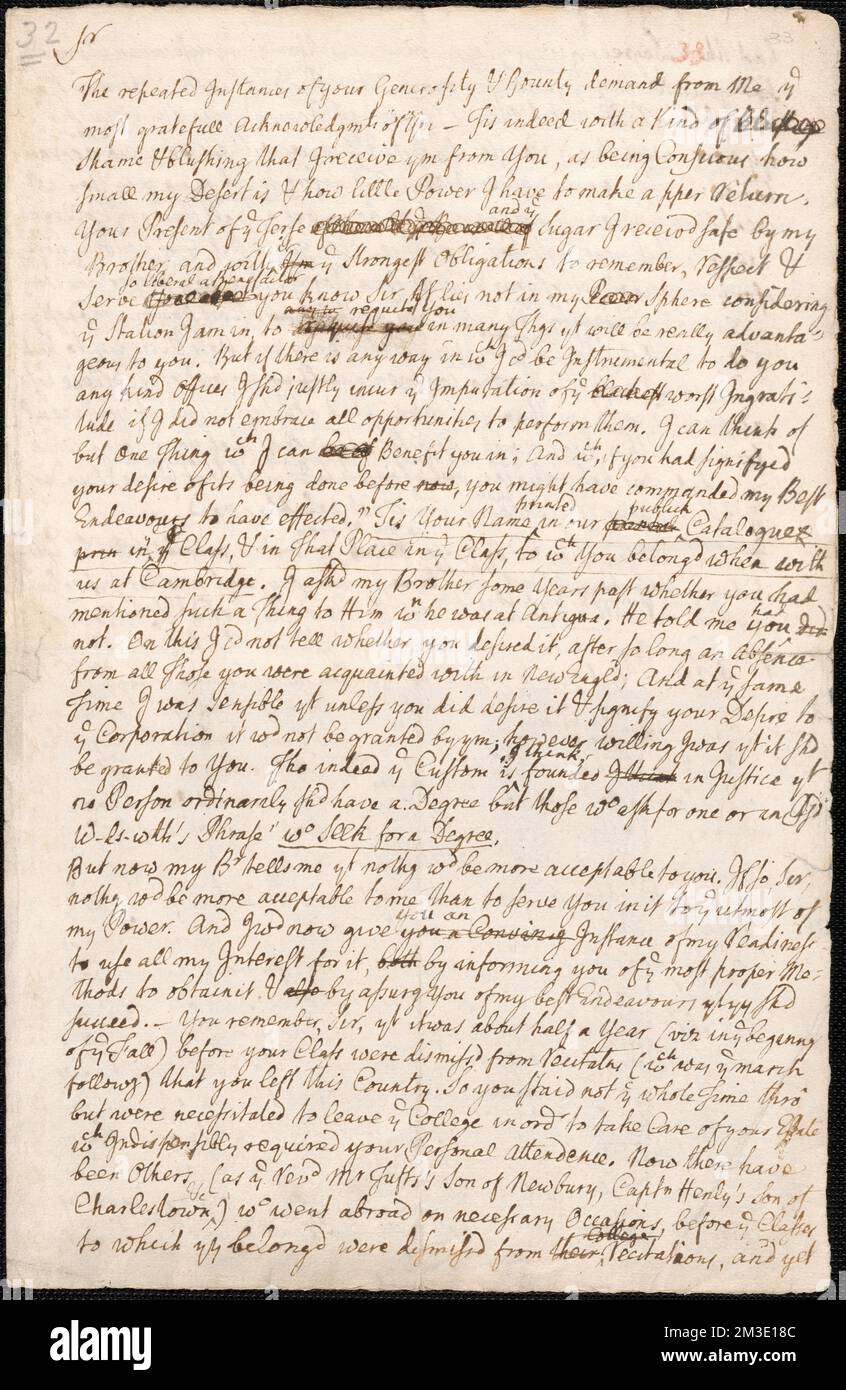 32
38
33
Sr
The repeated Instances of your Generosity & Bounty demand from Me ye
most gratefull Acknowledgmts - Tis indeed with a Kind of
Shame & blushing that I receive ym from You, as being Conscious how
small my Desert is & how little Power I have to make a pper Return.
Your Present of ye Jerse and ye Sugar I receivd safe by my
Brother, and will ye strongest Obligations to remember, respect &
serve so liberal a Benefactor you know Sir, It lies not in my Sphere considering
ye Station I am in, to requite you in many Thgs yt will be really advanta=
geous to you. But if there is any way in wch I cd be Instrumental to do you
any kind Offices I shd justly incur ye Imputation of ye blackest worst Ingrati=
tude if I did not embrace all opportunities to perform them. I can think of
but One Thing wch I can Benefit you in; And wch, if you had signifyed
your desire of its being done before now, you might have commanded my Best
Endeavours to have effected. Tis Your Name printed in our publick Catalogue
prin in ye Class, & in That Place in ye Class, to wch You belong'd when with
us at Cambridge. I ask'd my Brother some Years past whether you had
mentioned such a Thing to Him wn he was at Antigua. He told me you had did
not. On this I cd not tell whether you desired it, after so long an absence
from all Those you were acquainted with in New Engld; And at ye same
Time I was sensible yt unless you did desire it & signify your Desire to
ye Corporation it wd not be granted by ym; however willing I was yt it shd
be granted to You. Tho indeed ye Custom is I think founded I think in Justice yt
no Person ordinarily shd have a Degree but those wo ask for one or in
W-ds-wth's Phrase wo Seek for a Degree.
But now my Br tells me yt nothg wd be more acceptable to you. If so, Sir,
nothg wd be more acceptable to me than to serve you in it to ye utmost of
my Power. And I wd now give you an you a Convincing Instance of my Readiness
to use all my Interest for it, both by informing you of ye most proper Me=
thods to obtain it & also by assurg You of my best Endeavours yt yy shd
succeed. - You remember, Sir, yt it was about half a Year (viz in ye beginng
of ye Fall) before your Class were dismiss'd from recitatns (wch was ye March
followg) that you left this Country. So you staid not ye whole Time thro
but were necessitated to leave ye College in ordr to take Care of your Estate
wch Indispensibly required your Personal Attendence. Now there have
been Others, (as ye Revd Mr Tufts's Son of Newbury, Captn Henly's Son of
Charlestown &c) wo went abroad on necessary Occasions, before ye Classes
to which yy belong'd were dismiss'd from their College recitations, and yet
alamy
alamy
Image ID: 2M3E18C
www.alamy.com